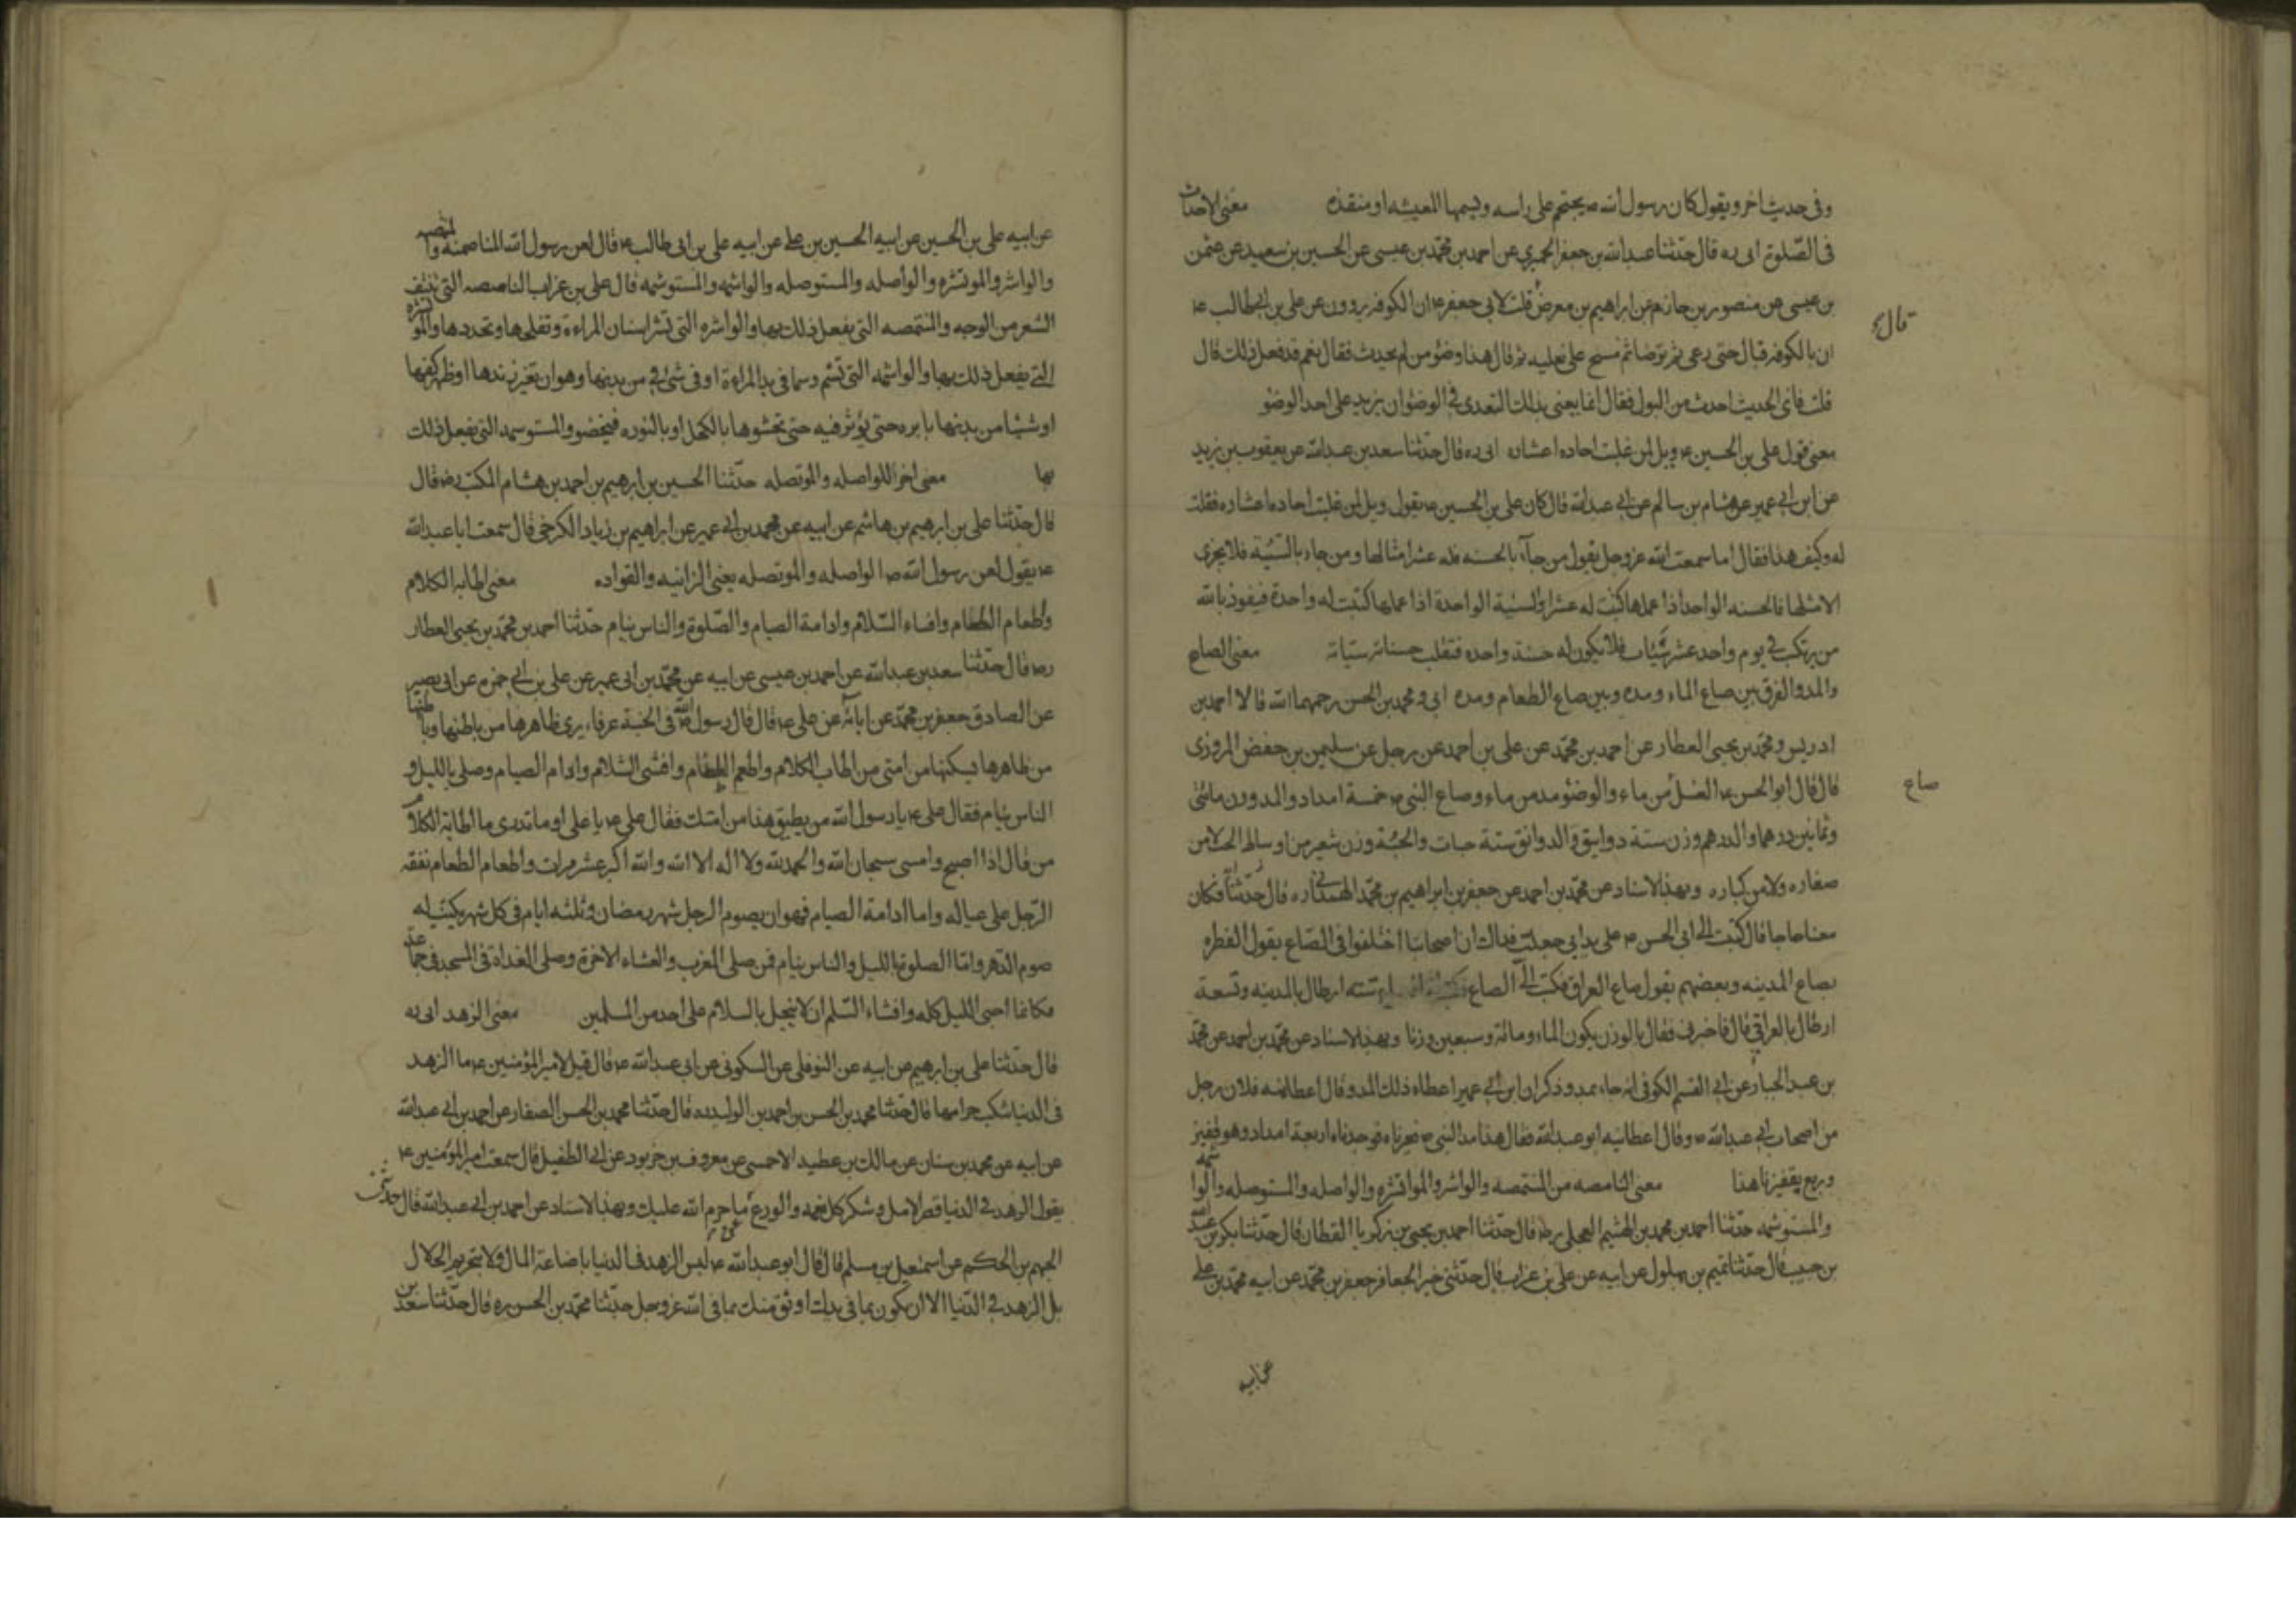 وفى حديث اخر ويقول كان رسول الله ص يحتجم على راسه ويسميها المغيثه او منقذه معنى الاحداث
فى الصّلوة ابى ره قال حدّثنا عبد الله بن جعفر الحميرى عن احمد بن محمّد بن عيسى عن الحسين بن سعيد عن عثمن
بن عيسى عن منصور بن حازم عن ابراهيم بن معرض قلت لابى جعفر ع ان الكوفه يروون عن على بن ابى طالب ع
قال ع
ان بالكوفه فبال حتى رعى ثم توضا ثم مسح على نعليه ثم قال هذا وضؤ من لم يحدث فقال نعم قد فعل ذلك قال
قلت فاى الحديث احدث من البول فقال انما يعنى بذلك التعدى فى الوضؤ ان يزيد على احد الوضؤ
معنى قول على بن الحسين ع ويل لمن غلبت احاده اعشاره ابى ره قال حدّثنا سعد بن عبد الله عن يعقوب بن يزيد
عن ابن ابى عمير عن هشام بن سالم عن ابى عبد الله قال كان على بن الحسين ع يقول ويل لمن غلبت احاده اعشاره فقلت
له وكيف هذا فقال اما سمعت الله عز وجل يقول من جاء بالحسنه فله عشر امثالها ومن جاء بالسّيّئة فلا يجزى
الا مثلها فالحسنه الواحد اذا عملها كتبت له عشرا والسيّئة الواحدة اذا عملها كتبت له واحدة فيغوذ بالله
من يرتكب فى يوم واحد عشر سّيئات فلا تكون له حسنة واحده فتغلب حسناته سيّاته معنى الصاع
والمد والفرق بين صاع الماء ومده وبين صاع الطعام ومده ابى و محمد بن الحسن رحمهما الله قالا احمد بن
ادريس ومحمّد بن يحيى العطار عن احمد بن محمّد عن على بن احمد عن رجل عن سليمن بن حفص المروزى
قال قال ابو الحسن ع الغسل من ماء والوضؤ مد من ماء وصاع النبى ص خمسة امداد والمد وزن مائتى
صاع
وثمانين درهما والدرهم وزن ستة دوانيق والدوانق ستة حبات والحبّة وزن شعير من اوساط الحب لا من
صغاره ولا من كباره وبهذا الاسناد عن محمّد بن احمد عن جعفر بن ابراهيم بن محمّد الهمدانى ره قال حدّثنا فكان
معنا حاجا قال كتبت الى ابى الحسن ع على يد ابى جعلت فداك ان اصحابنا اختلفوا فى الصّاع يقول الفطره
بصاع المدينه وبعضهم يقول صاع العراق فكتب الىّ الصاع ستته ارطال بالمدينه وتسعة
ارطال بالعراقى قال فاخبرنى فقال بالوزن يكون الماء ومائة وسبعين وزنا وبهذا الاسناد عن محمّد بن احمد عن محمّد
بن عبد الجبار عن ابى القسم الكوفى انه جاء بمد وذكر ان ابن ابى عمير اعطاه ذلك المد وقال اعطانيه فلان رجل
من اصحاب ابى عبد الله ع وقال اعطانيه ابو عبد الله فقال هذا مد النبى ص فعيرناه فوجدناه اربعة امداد وهو قفيز
وربع بقفيزنا هذا معنى النامصه من المنتمصه والواشر والمواتشره والواصله والمستوصله والواشمه
والمستوشمه حدّثنا احمد بن محمد بن الهيثم العجلى ره قال حدّثنا احمد بن يحيى بن زكريا القطان قال حدّثنا بكر بن عبد الله
بن حبيب قال حدّثنا تميم بن بهلول عن ابيه عن على بن غراب قال حدّثنى خير الجعافر جعفر بن محمّد عن ابيه محمّد بن على
عن ابيه
عن ابيه على بن الحسين عن ابيه الحسين بن على عن ابيه على بن ابى طالب ع قال لعن رسول الله النامصه والمنتمصه
والواشر والموتشره والواصله والمستوصله والواشمه والمستوشمه قال على بن غراب النامصه التى تنتف
الشعر من الوجه والمنتمصه التى يفعل ذلك بها والواشره التى تشر اسنان المراءة وتفلجها وتحددها والموتشره
التى يفعل ذلك بها والواشمه التى تشم وسما فى يد المراءة او فى شئ من بدنها وهو ان تغرز يدها او ظهر كفها
او شيئا من بدنها بابره حتى يؤثر فيه حتى تحشوها بالكحل او بالنوره فيخضر والمستوسمه التى يفعل ذلك
بها معنى اخر للواصله والموتصله حدّثنا الحسين بن ابرهيم بن احمد بن هشام المكتب ره قال
قال حدّثنا على بن ابرهيم بن هاشم عن ابيه عن محمد بن ابى عمير عن ابراهيم بن زياد الكرخى قال سمعت ابا عبد الله
ع يقول لعن رسول الله ص الواصله والموتصله يعنى الزانيه والقواده معنى اطابه الكلام
واطعام الطعام وافشاء السّلام وادامة الصيام والصّلوة والناس نيام حدّثنا احمد بن محمّد بن يحيى العطار
ره قال حدّثنا سعد بن عبد الله عن احمد بن عيسى عن ابيه عن محمّد بن ابى عمير عن على بن ابى حمزه عن ابى بصير
عن الصادق جعفر بن محمّد عن ابائه عن على ع قال قال رسول الله فى الجنّة غرفا يرى ظاهرها من باطنها وباطنها
من ظاهرها يسكنها من امتى من اطاب الكلام واطعم الطعام وافشى السّلام وادام الصيام وصلى بالليل و
الناس نيام فقال على ع يا رسول الله من يطيق هذا من امتك فقال على ع يا على او ما تدرى ما اطابة الكلام
من قال اذا اصبح وامسى سبحان الله والحمد لله ولا اله الا الله والله اكبر عشر مرات واطعام الطعام نفقه
الرّجل على عياله واما ادامة الصيام فهو ان يصوم الرجل شهر رمضان وثلثه ايام فى كل شهر يكتب له
صوم الدّهر وامّا الصلوة بالليل والناس نيام فمن صلى المغرب والعشاء الاخرة وصلى الغداة فى المسجد فى جماعة
فكانما احيى الليل كله وافشاء السّلم ان لا يبخل بالسلام على احد من المسلمين معنى الزهد ابى ره
قال حدّثنا على بن ابرهيم عن ابيه عن النوفلى عن السكونى عن ابى عبد الله ع قال قيل لامير المؤمنين ع ما الزهد
فى الدنيا تنكب حرامها قال حدّثنا محمد بن الحسن بن احمد بن الوليد ره قال حدّثنا محمد بن الحسن الصفار عن احمد بن ابى عبد الله
عن ابيه عن محمد بن سنان عن مالك بن عطيه الاحمسى عن معروف بن خربوذ عن ابى الطفيل قال سمعت امير المؤمنين ع
يقول الزهد فى الدنيا قصر الامل وشكر كل نعمه والورع عما حرم الله عليك وبهذا الاسناد عن احمد بن ابى عبد الله قال حدثنى
الجهم بن الحكم عن اسمعيل بن مسلم قال قال ابو عبد الله ع ليس الزهد فى الدنيا باضاعة المال ولا بتحريم الحلال
بل الزهد فى الدّنيا الا ان يكون بما فى يدك اوثق منك بما فى الله عز وجل حدّثنا محمّد بن الحسن ره قال حدّثنا سعد بن